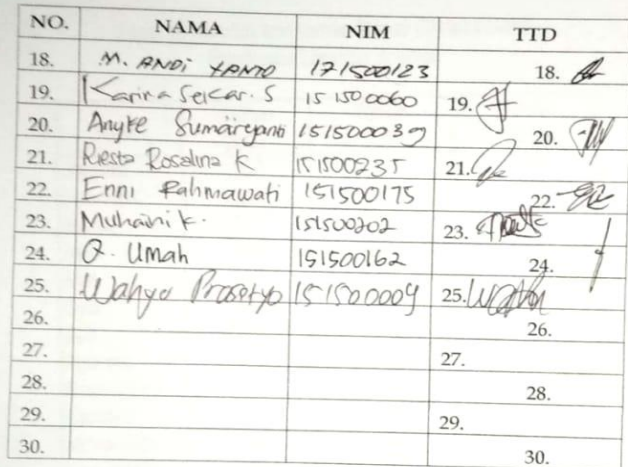 NO. NAMA NIM TTD
18. M. ANDi YANTO 171500123 18.
19. Karina Sekar. S 151500060 19.
20. Anyke 151500039 20.
21. Riesta Rosalina K 151500235 21.
22. Enni Rahmawati 151500175 22.
23. Muhaini k. 151500202 23.
24. Q. Umah 151500162 24.
25. Wahyu Prasetyo 151500009 25.
26. 26.
27. 27.
28. 28.
29. 29.
30. 30.